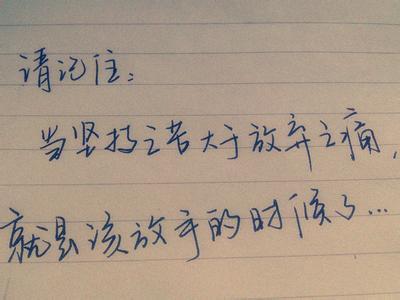 请记住:
当坚持之苦大于放弃之痛,
就是该放手的时候了...